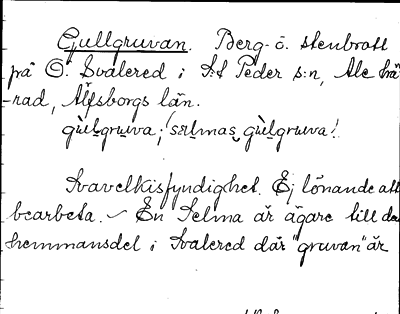 Gullgruvan. Berg- o. stenbrott
på Ö. Svalered i S:t Peder s:n, Ale hä
-rad, Älfsborgs län.
gùl̲gru̲wa; 'sælmas gùl̲gru̲wa!
Svavelkisfyndighet. Ej lönande att
bearbeta. – En Selma är ägare till den
hemmansdel i Svalered där "gruvan" är